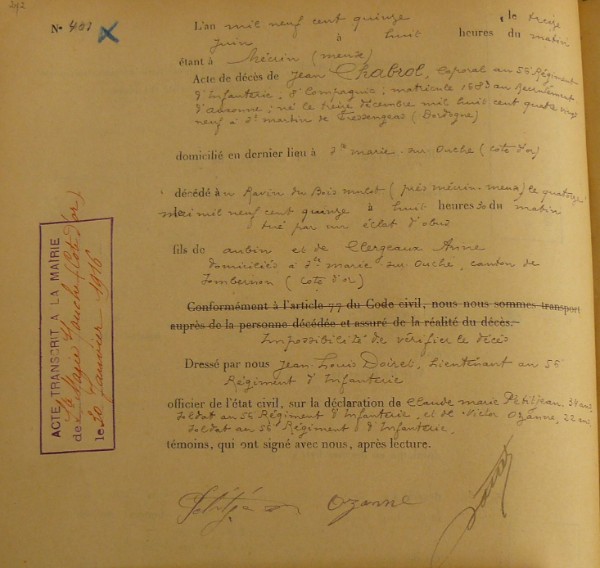 242
N° 401
L'an mil neuf cent quinze le treize
juin à huit heures du matin
étant à Mécrin (Meuse)
Acte de décès de Jean Chabrol, Caporal au 56 Régiment
d'Infanterie, 8e Compagnie; matricule au recrutement
d'Auxonne; né le treize décembre mil huit cent quatre vingt
neuf à St Martin de Fressengeas (Dordogne)
domicilié en dernier lieu à Ste Marie-sur-Ouche (Côte d'Or)
décédé au Ravin du Bois mulot (près Mécrin-Meuse) le quatorze
mai mil neuf cent quinze à huit heures 30 du matin
tué par un éclat d'obus
fils de Aubin et de Clergeaux Anne
domiciliés à Ste Marie-sur Ouche, canton de
Sombernon (Côte d'Or)
Conformément à l'article 77 du Code civil, nous nous sommes transport
auprès de la personne décédée et assuré de la réalité du décès.
Impossibilité de vérifier le décès
Dressé par nous Jean Louis Lieutenant au 56
Régiment d'Infanterie
officier de l'état civil, sur la déclaration de Claude Marie Petitjean, 34 ans,
soldat au 56 Régiment d'Infanterie, et de Victor Ozanne, 22 ans,
soldat au 56 Régiment d'Infanterie,
témoins, qui ont signé avec nous, après lecture.
Petitjean Ozanne
ACTE TRANSCRIT A LA MAIRIE
de Ste Marie s/Ouche (Côte d'or)
le 20 Janvier 1916